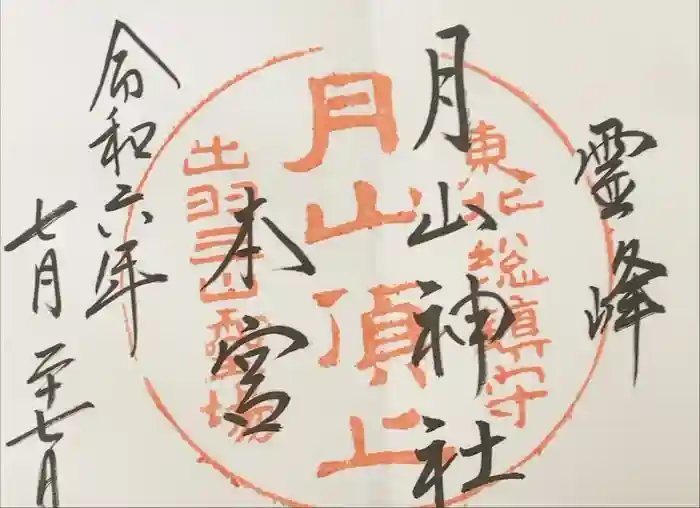 霊峰
月山神社
本宮
令和六年
七月二十七月
東北総鎮守
月山頂上
出羽三山霊場